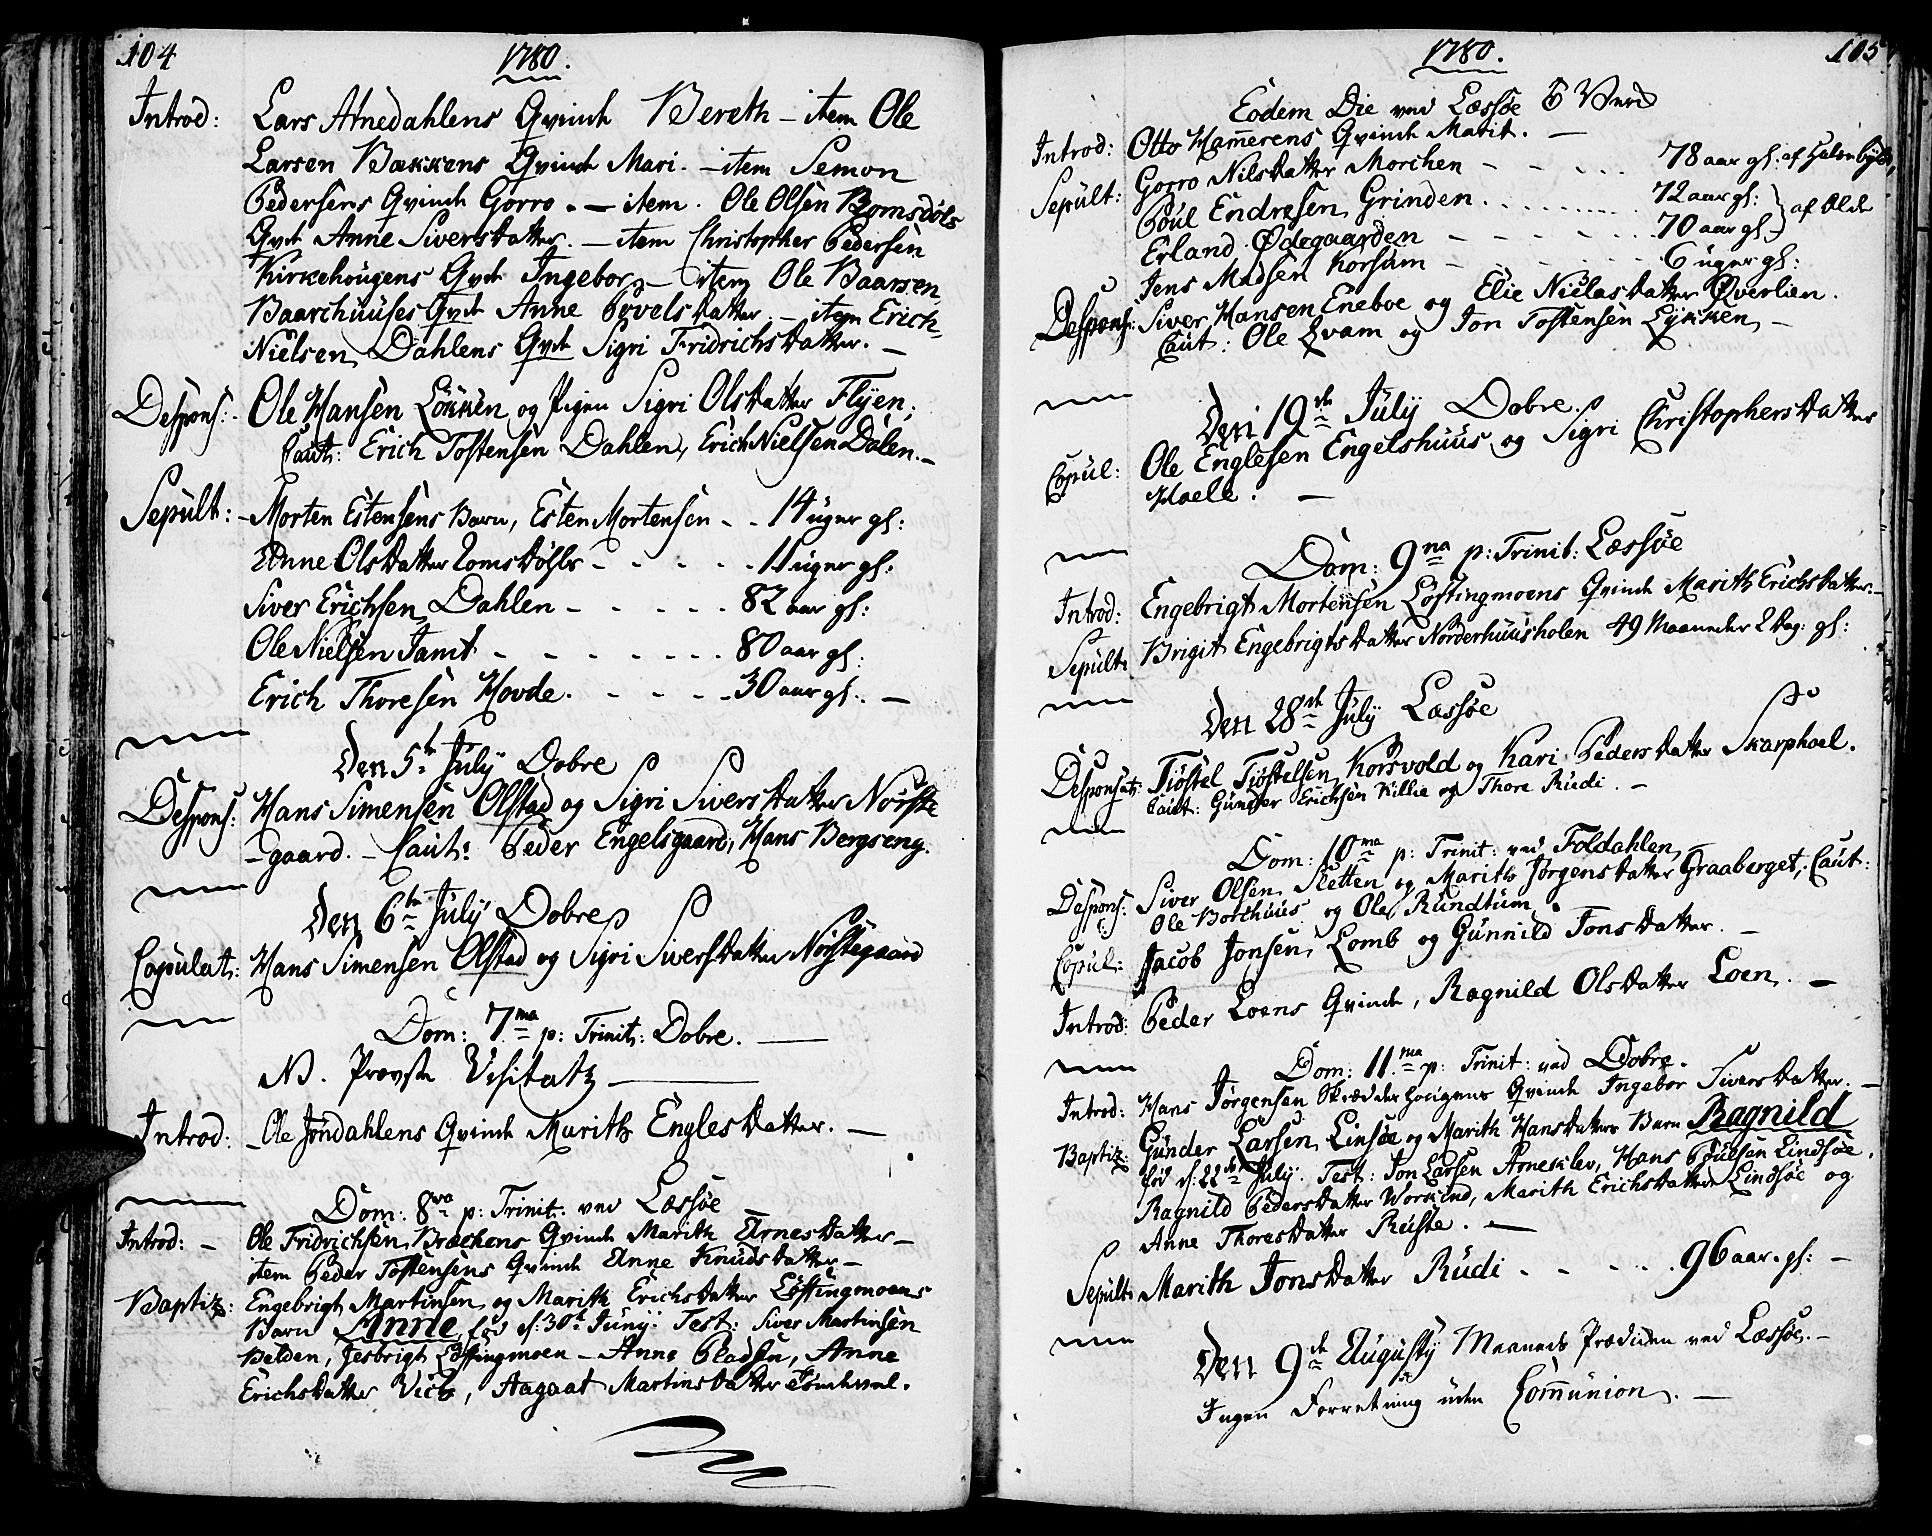 104
1780.
Introd: Lars Atnedahlens Qvinde Bereth - item Ole
Larsen Bækkens Qvinde Mari. - item Semon
Pedersens Qvinde Gorro. - item. Ole Olsen
Qvd Anne Siversdatter. - item Christopher Pedersen
Kirkehougens Qvd Ingebor, - item Ole Baarsen
Baarchuuses Qvd Anne Povelsdatter. - item Erich
Nielsen Dahlens Qvd Sigri Fridrichsdatter. -
Despons: Ole Hansen Løkken og Pigen Sigri Olsdatter Flyen;
Caut: Erich Tostensen Dahlen, Erich Nielsen Dalen. -
Sepult: - Morten Estensens Barn, Esten Mortensen - - 14 uger gl:
Anne Olsdatter - - - - - 11 uger gl:
Siver Erichsen Dahlen - - - - - 82 aar gl:
Ole Nielsen Jamt - - - - - - - 80 aar gl:
Erich Thoresen Hovde. - - - - - 30 aar gl: -
Den 5te July Dobre
Despons: Hans Simensen Olstad og Sigri Siversdatter Nørste
-gaard. - Caut: Peder Engelsgaard, Hans Bergseng.
Den 6te July Dobre
Copulat: Hans Simensen Olstad og Sigri Siversdatter Nørstegaard
Dom: 7ma p: Trinit: Dobre. -
NB. Provste Visitatz -
Introd: - Ole Jondahlens Qvinde Marith Englesdatter. -
Dom: 8va p: Trinit: ved Læssøe
Introd: - Ole Fridrichsen Brækens Qvinde Marith Arnesdatter -
item Peder Tostensens Qvinde Anne Knudsdatter -
Baptiz: Engebrigt Martinsen og Marith Erichsdatter Løftingmoens
Barn Anne, fød d: 30te Juny. Test: Siver Martinsen
Belden, Jesbrigt Løftingmoen - Anne Anne
Erichsdatter Vich, Aagaat Martinsdatter
105
1780.
Eodem Die ved Læssøe
Introd: Otto Hamerens Qvinde Marit. -
Sepult: Gorro Nilsdatter Morchen - - - - - 78 aar gl: af
Poul Endresen Grinden. - - - - - 72 aar gl: } af Ælde
Erland Ødegaarden - - - - - 70 aar gl: }
Jens Madsen Korsum - - - - - 6 uger gl:
Despons: Siver Hansen Eneboe og Elie Nielasdatter Øverlien.
Caut: Ole Qvam og Jon Tostensen Lykken -
Den 19de July Dobre.
Copul: Ole Englesen Engelshuus og Sigri Christophersdatter
Haele. -
Dom: 9na p: Trinit: Læssøe
Introd: Engebrigt Mortensen Løftingmoens Qvinde Marith Erichsdatter. -
Sepult: Brigit Engebrigtsdatter Norderhuusholen 49 Maaneder 2 Dag: gl:
Den 28de July Læssøe
Desponsat: Tiøstel Tiøstelsen Korsvold og Kari Pedersdatter Skarphoel.
Caut: Gunder Erichsen Killie og Thore Rudi. -
Dom: 10ma p: Trinit: ved Foldahlen,
Despons: Siver Olsen Sletten og Marith Jørgensdatter Graaberget; Caut:
Ole Borchuus og Ole Rundtum.
Copul: Jacob Jonsen Lomb og Gunnild Jonsdatter. -
Introd: Peder Loens Qvinde, Ragnild Olsdatter Loen. -
Dom: 11.ma p: Trinit: ved Dobre.
Introd: Hans Jørgensen Skrædderhougens Qvinde Ingebor Siversdatter. -
Baptiz: Gunder Larsen Linsøe og Marith Hansdatters Barn Ragnild
fød d: 22de July. Test: Jon Larsen Arneklev, Hans Poulsen Lindsøe,
Ragnild Pedersdatter Workind, Marith Erichsdatter Lindsøe og
Anne Thoresdatter Ruste. -
Sepult: Marith Jonsdatter Rudi - - - - - 96 aar. gl: -
Den 9de Augusty Maaneds Prædiken ved Læssøe. -
Ingen Forretning uden Communion. -